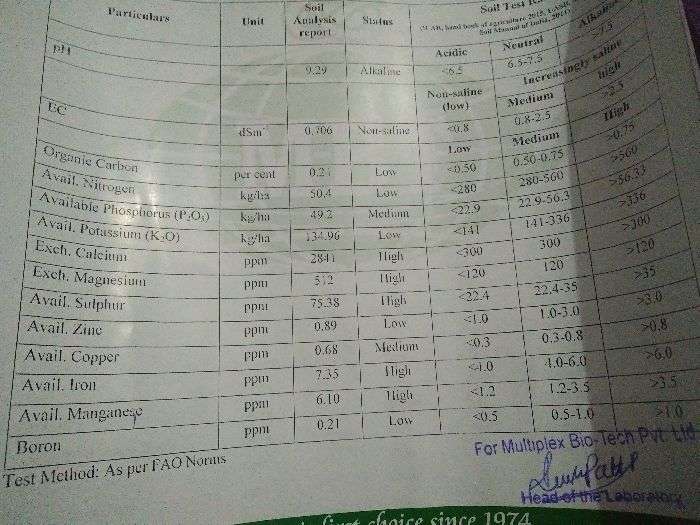 Particulars Unit Soil Analysis report Status Soil Test
Soil Manual of India, 2011)
Acidic Neutral Alkaline
pH 9.29 Alkaline <6.5 6.5-7.5 >7.5
Non-saline (low) Medium Increasingly saline high
EC dSm⁻¹ 0.706 Non-saline <0.8 0.8-2.5 >2.5
Low Medium High
Organic Carbon per cent 0.21 Low <0.50 0.50-0.75 >0.75
Avail. Nitrogen kg/ha 50.4 Low <280 280-560 >560
Available Phosphorus (P₂O₅) kg/ha 49.2 Medium <22.9 22.9-56.3 >56.33
Avail. Potassium (K₂O) kg/ha 134.96 Low <141 141-336 >336
Exch. Calcium ppm 2841 High <300 300 >300
Exch. Magnesium ppm 512 High <120 120 >120
Avail. Sulphur ppm 75.38 High <22.4 22.4-35 >35
Avail. Zinc ppm 0.89 Low <1.0 1.0-3.0 >3.0
Avail. Copper ppm 0.68 Medium <0.3 0.3-0.8 >0.8
Avail. Iron ppm 7.35 High <4.0 4.0-6.0 >6.0
Avail. Manganese ppm 6.10 High <1.2 1.2-3.5 >3.5
Boron ppm 0.21 Low <0.5 0.5-1.0 >1.0
Test Method: As per FAO Norms
For Multiplex Bio-Tech Pvt. Ltd
Head of the Laboratory
first choice since 1974